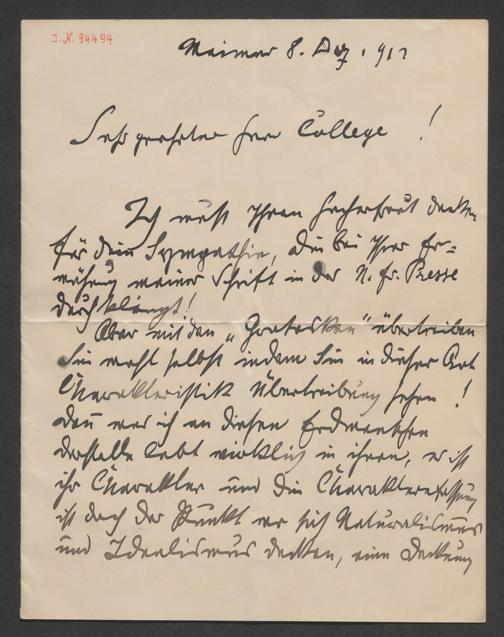 J. N. 94494
Weimar 8. Dez. 1912
Sehr geehrter Herr College!
Ich muß Ihnen danken
für die Sympathie, die bei Ihrer Er-
wähnung meiner Schrift in der N. fr. Presse
durchklingt!
Aber mit den „Grotesken“ übertreiben
Sie wohl selbst indem Sie in dieser Art
Charakteristik Übertreibung sehen!
Denn was ich an diesen Erdmenschen
darstelle lebt wirklich in ihnen, es ist
ihr Charakter und die Charaktererfassung
ist doch der Punkt wo sich Naturalismus
und Idealismus decken, eine Deckung